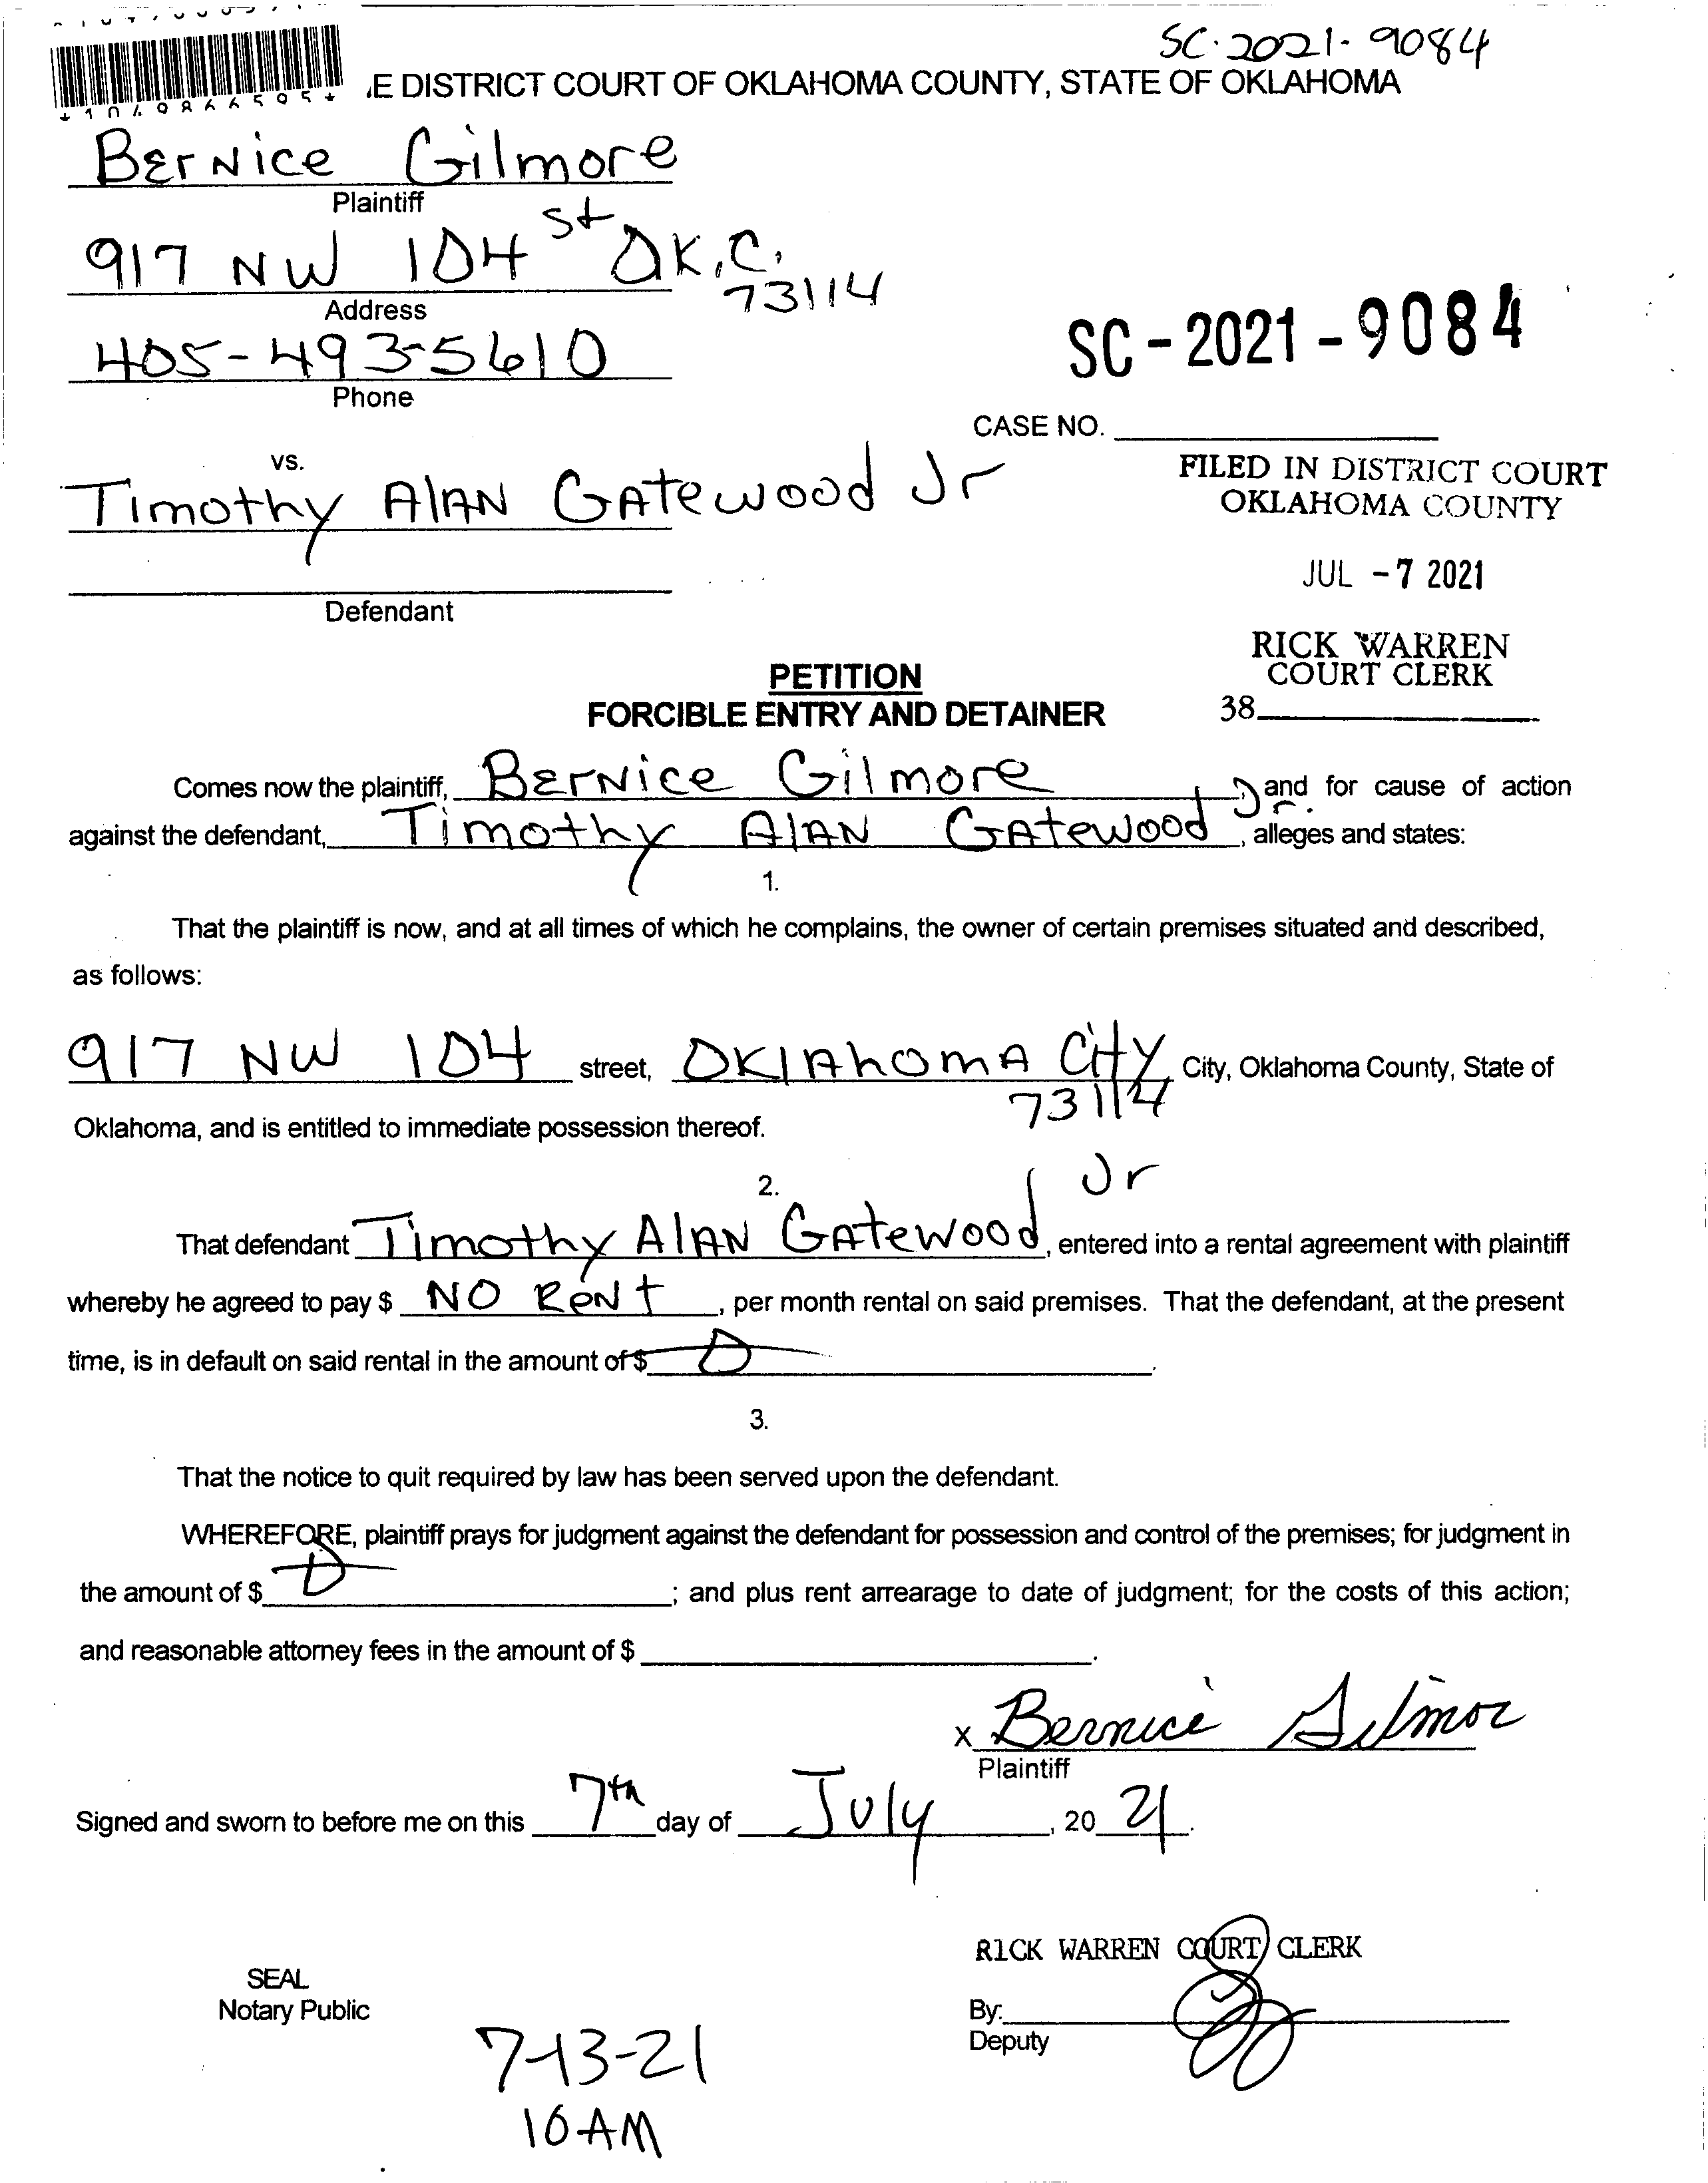 SC-2021-9084
E DISTRICT COURT OF OKLAHOMA COUNTY, STATE OF OKLAHOMA
Bernice Gilmore
Plaintiff
917 NW 104 St OK.C.
73114
Address
405-493-5610
Phone
SC-2021-9084
CASE NO.
vs.
Timothy Alan Gatewood Jr
FILED IN DISTRICT COURT
OKLAHOMA COUNTY
JUL -7 2021
Defendant
RICK WARREN
COURT CLERK
38
PETITION
FORCIBLE ENTRY AND DETAINER
Comes now the plaintiff, Bernice Gilmore, and for cause of action
against the defendant, Timothy Alan Gatewood Jr., alleges and states:
1.
That the plaintiff is now, and at all times of which he complains, the owner of certain premises situated and described,
as follows:
917 NW 104 street, Oklahoma City City, Oklahoma County, State of
73114
Oklahoma, and is entitled to immediate possession thereof.
2.
That defendant Timothy Alan Gatewood Jr, entered into a rental agreement with plaintiff
whereby he agreed to pay $ NO RENT, per month rental on said premises. That the defendant, at the present
time, is in default on said rental in the amount of $ 0.
3.
That the notice to quit required by law has been served upon the defendant.
WHEREFORE, plaintiff prays for judgment against the defendant for possession and control of the premises; for judgment in
the amount of $ 0; and plus rent arrearage to date of judgment; for the costs of this action;
and reasonable attorney fees in the amount of $ .
x Bernice Gilmore
Plaintiff
Signed and sworn to before me on this 7th day of July, 2021.
RICK WARREN COURT CLERK
SEAL
Notary Public
By:
Deputy
7-13-21
10 AM